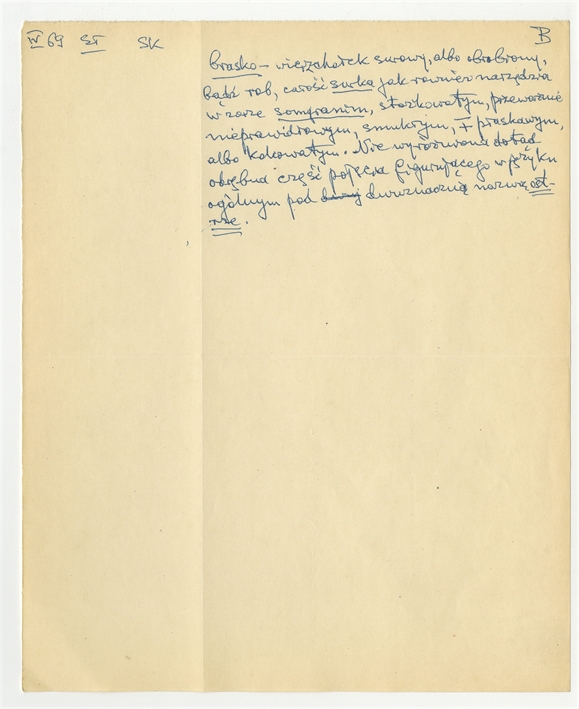 IV 69 SŁ SK B
brasko – wierzchołek surowy, albo obrobiony,
bądź rob, całość surka jak również narzędzia
w zarze somgranim, stożkowatym, przeważnie
nieprawidłowym, smukłym, ∓ płaskawym,
albo kolcowatym. Nie wyróżniona dotąd
odrębna część pojęcia figurującego w języku
ogólnym pod dwuznaczną nazwą ost-
rze.